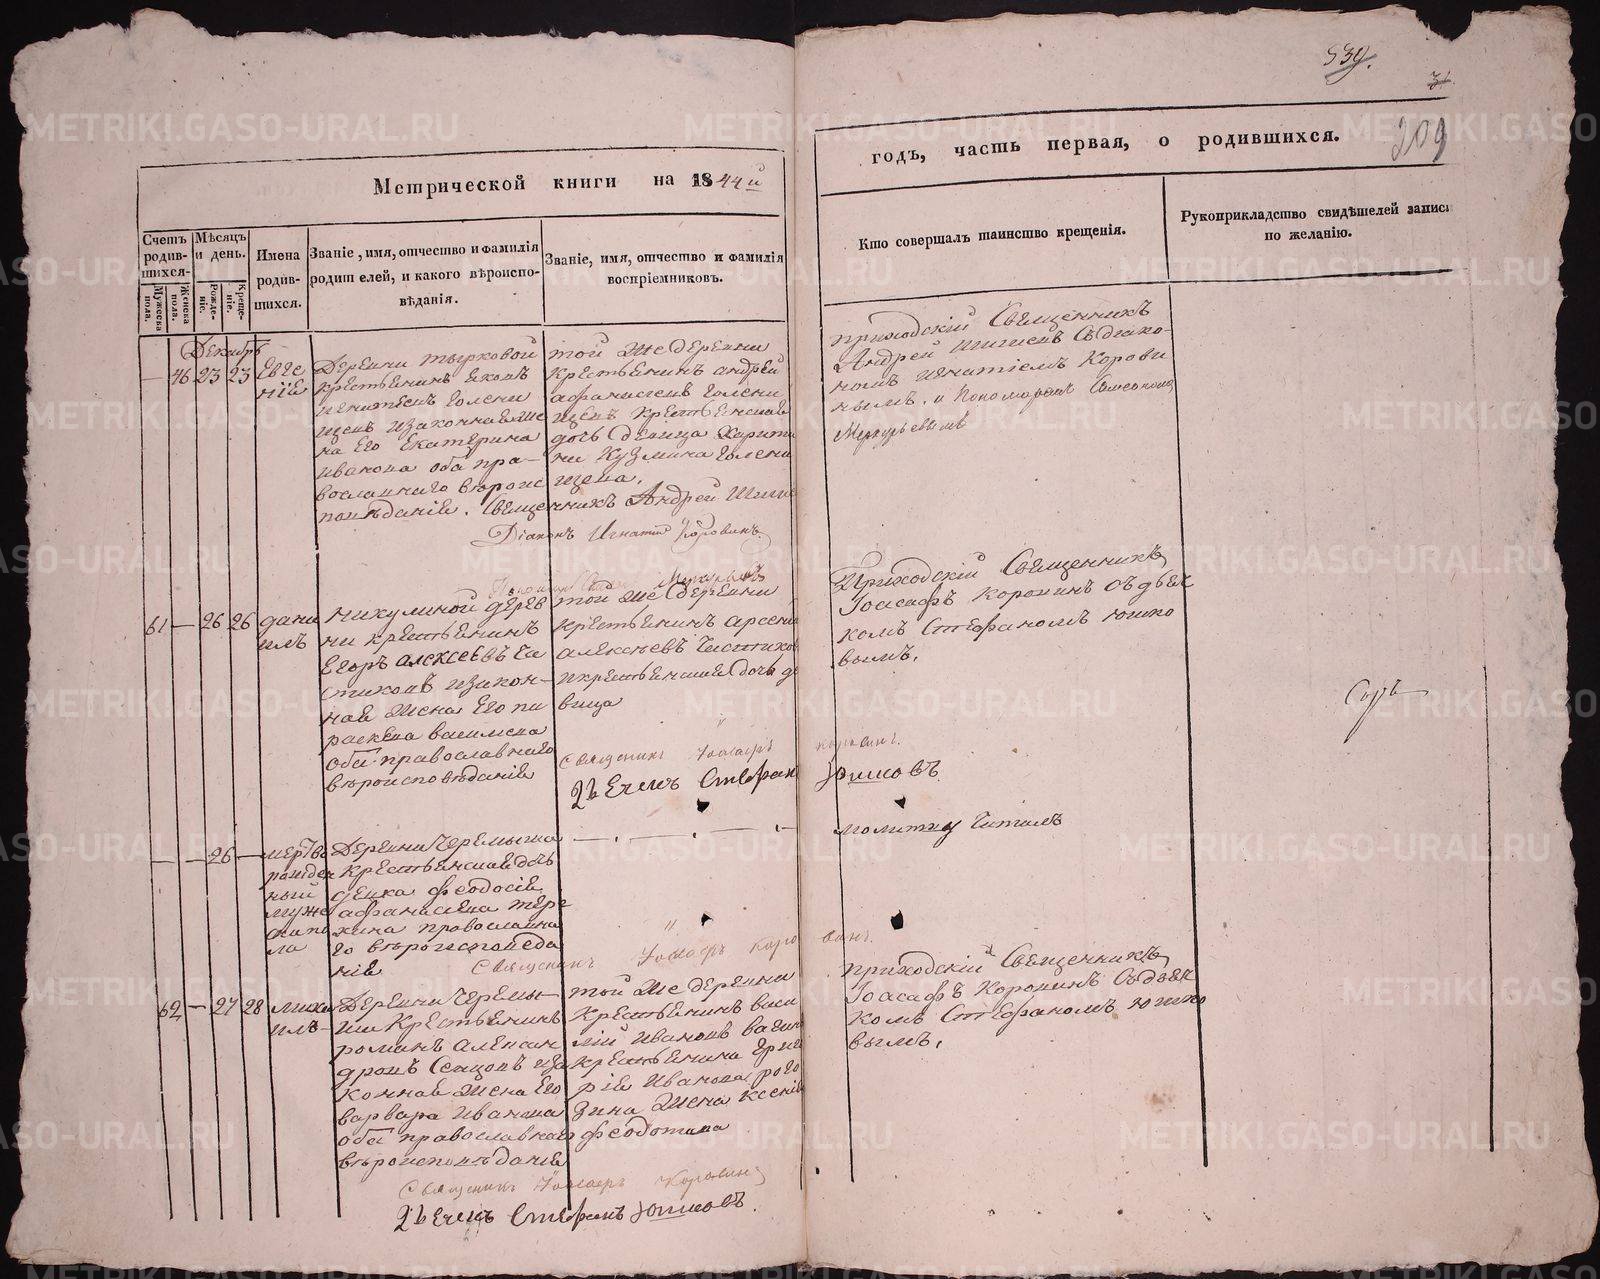 539.
31
209
Метрической книги на 1844й
годъ, часть первая, о родившихся.
Счетъ родив-шихся.
Мужеска пола.
Женска пола.
Мѣсяцъ и день.
Рожде-ніе.
Креще-ніе.
Имена родив-шихся.
Званіе, имя, отчество и фамилія
родителей, и какого вѣроиспо-
вѣданія.
Званіе, имя, отчество и фамилія
воспріемниковъ.
Кто совершалъ таинство крещенія.
Рукоприкладство свидѣтелей записи
по желанію.
Декабрь
— 46 23 23
Евге
нїе
Деревни тырковой
крестьенинъ яковъ
игнатьевъ голени
щевъ изаконная же
на Его Екатерина
иванова оба пра—
вославнаго вѣроис
повѣданіе.
той же деревни
крестьенинъ андрей
афанасьевъ голени
щевъ крестьенская
дочь девица харити
ни кузмина голени
щева.
Священникъ Андрей
Діаконъ Игнатій Коровинъ.
приходскій Священникъ
Андрей Съ діако-
номъ игнатіемъ Корови
нымъ. и Пономаремъ
Меркурьевымъ
61 — 26 26
дани
илъ
никулиной дерев
ни крестьенинъ
Егоръ алексеевъ Ча
стиковъ изакон-
ная жена Его па
раскева васильева
оба православнаго
вѣроисповѣданіе
той же деревни
крестьенинъ арсени
алексеевъ Частиков
и крестьенская дочь де
вица
Священникъ Іоасафъ Коровинъ.
Дьячекъ Стефанъ Юшковъ.
Приходскій Священникъ
Іоасафъ Коровинъ съ дьяч
комъ Стефаномъ юшко
вымъ.
— — 26 —
мертво
рожден
ный
муже
ска по
ла
Деревни Черемыша
крестьенская дочь
девка феодосіе
афанасьева тер
хина православна
го вѣроисповеда
ніе
Священникъ Іоасафъ Коровинъ.
молитву Читалъ
62 — 27 28
миха
илъ
Деревни Черемы-
ша Крестьенинъ
романъ алексан
дровъ иза
конная жена Его
варвара иванова
оба православнаго
вѣроисповѣданіе
той же деревни
крестьенинъ васи
лій ивановъ
крестьенина григо
ріе иванова рого
зина жена ксеніе
феодотова
Священникъ Іоасафъ Коровинъ
Дьячекъ Стефанъ Юшковъ.
приходскій Священникъ
Іоасафъ Коровинъ Съ дьяч
комъ Стефаномъ юшко
вымъ.
METRIKI.GASO-URAL.RU